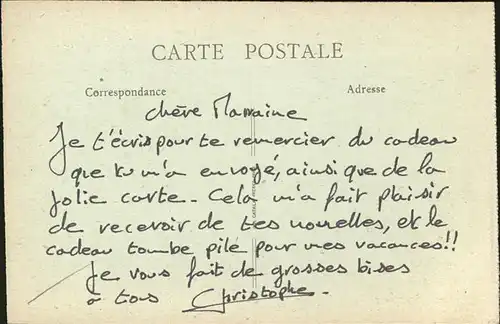 CARTE POSTALE
Correspondance
Adresse
chère Marraine
Je t'écris pour te remercier du cadeau
que tu m'a envoyé, ainsi que de la
jolie carte. Cela m'a fait plaisir
de recevoir de tes nouvelles, et le
cadeau tombe pile pour mes vacances!!
Je vous fait de grosses bises
à tous Christophe.